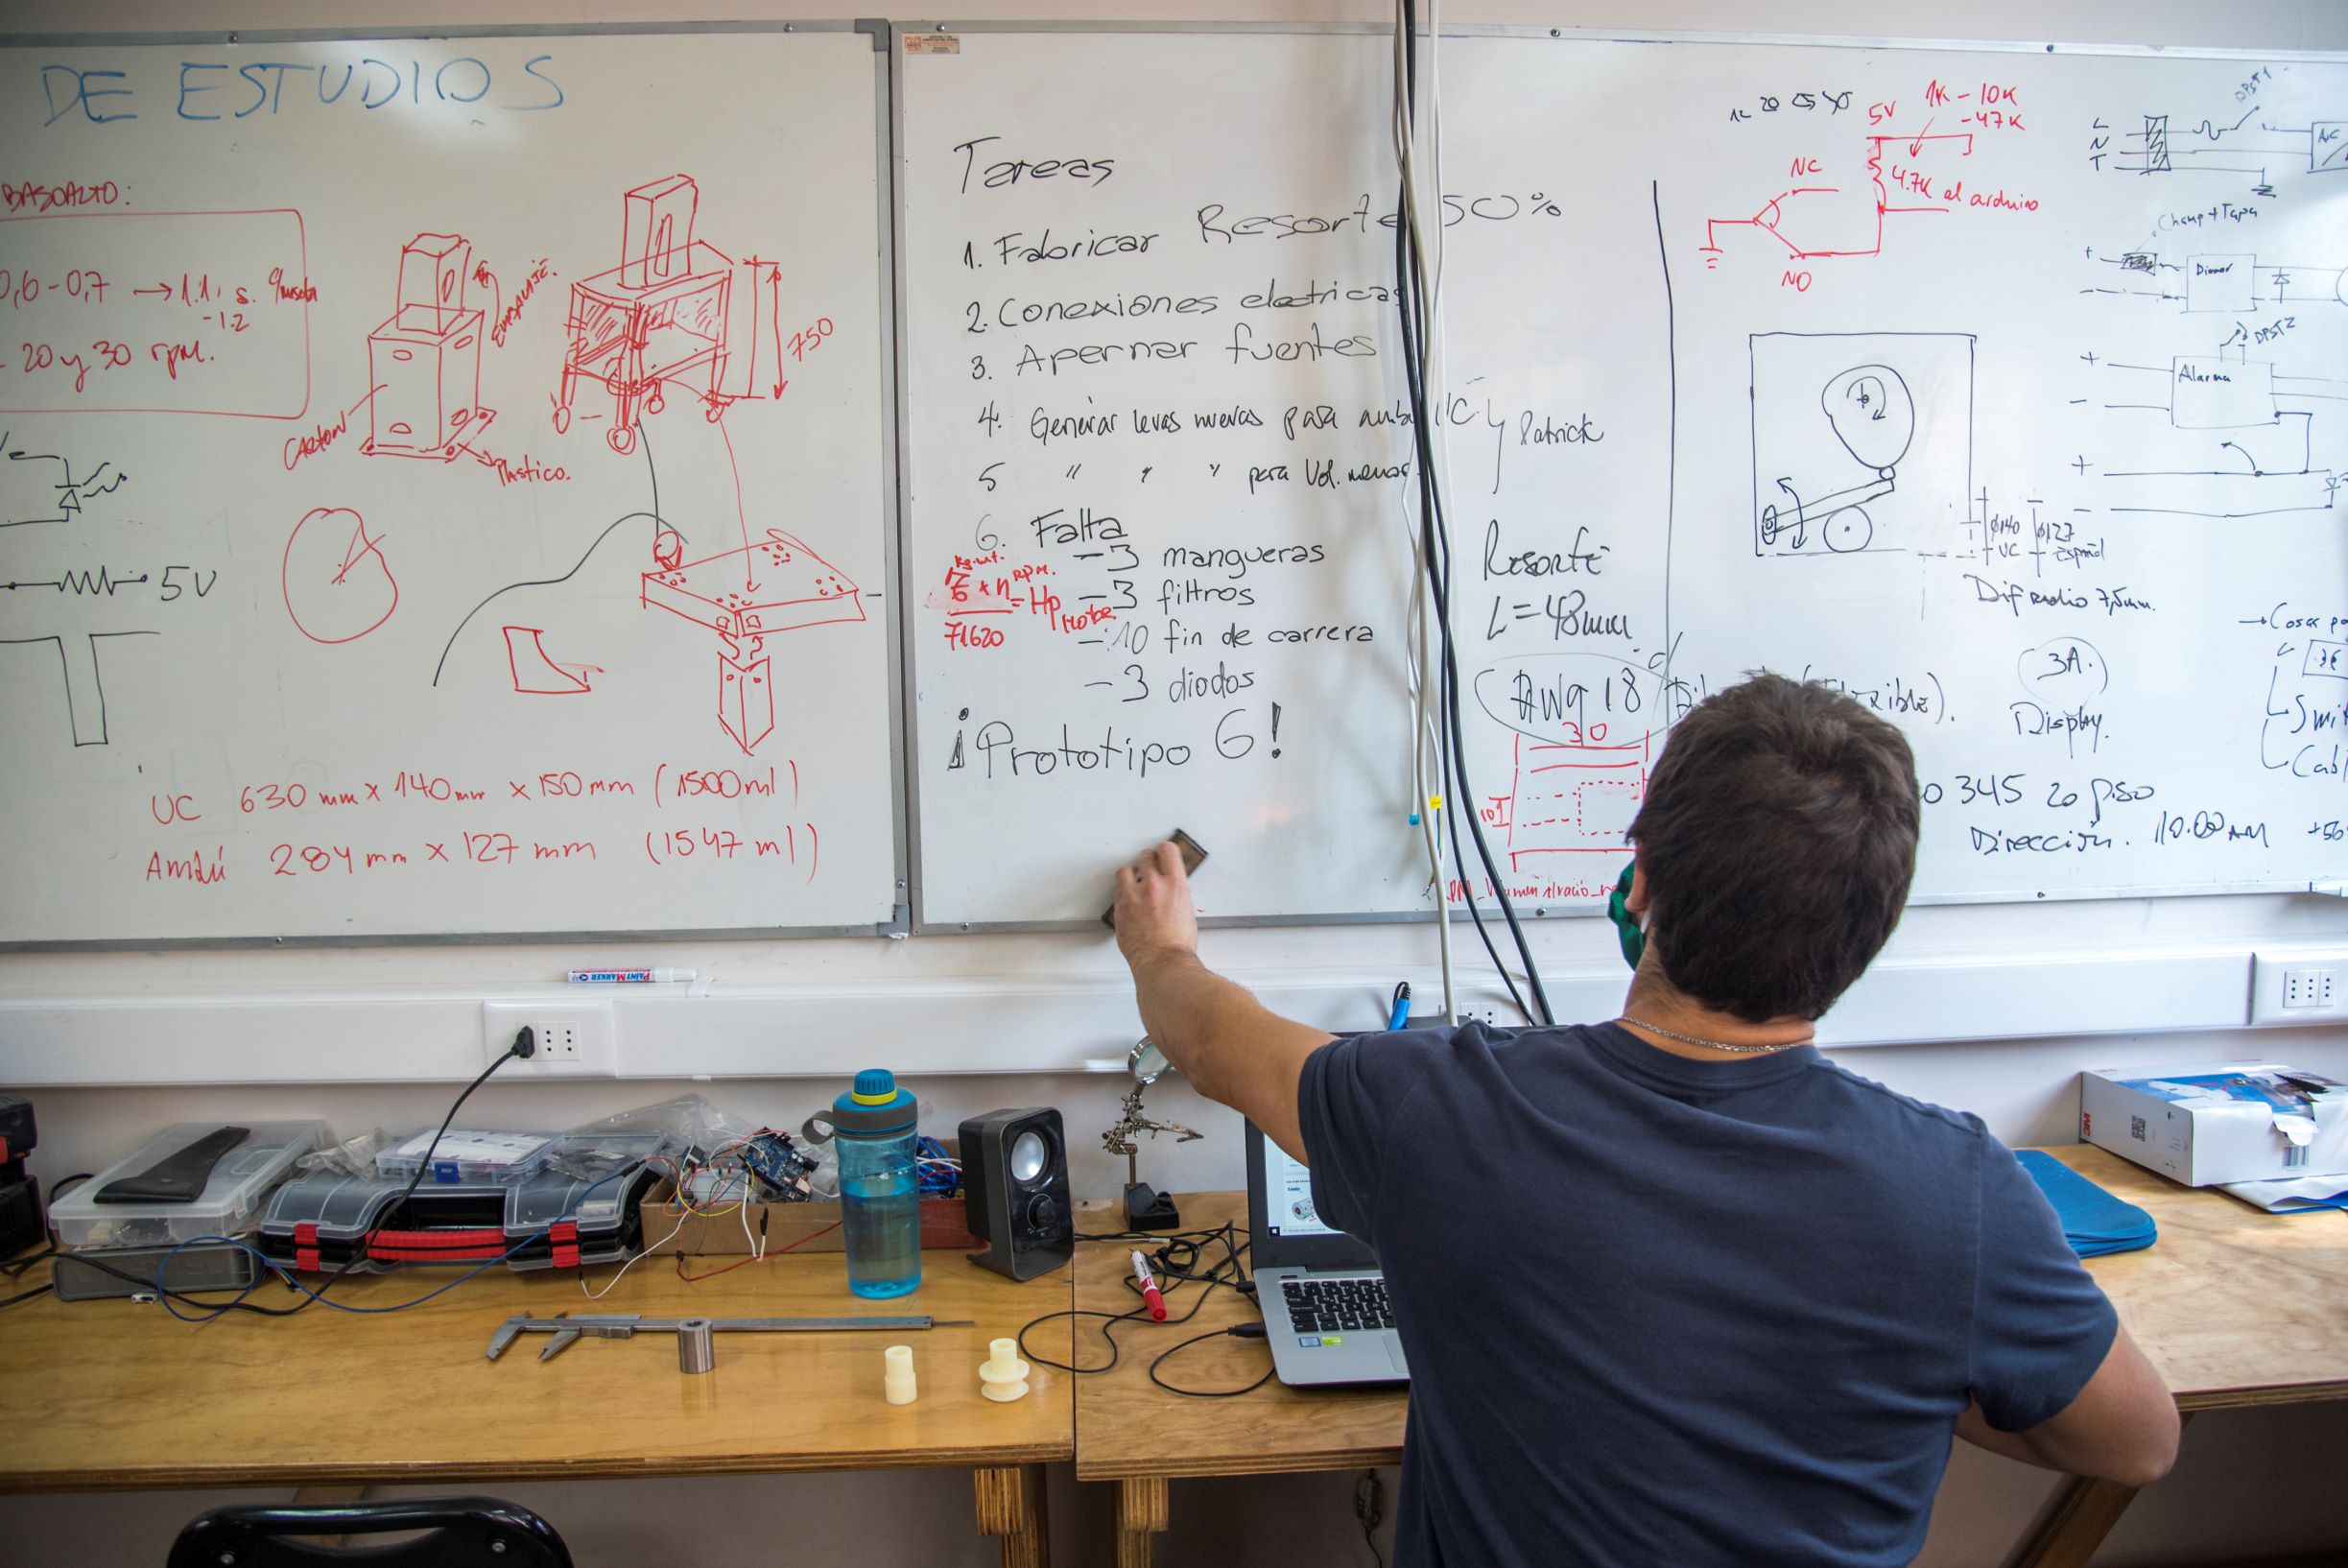 DE ESTUDIOS
BASOALTO:
0,6-0,7 → 1:1,
-1.2
20 y 30 rpm.
EMBALAJE.
CARTON
Plastico.
750
5V
UC 630 mm x 140 mm x 150 mm (1500 ml)
Ambú 284 mm x 127 mm (1547 ml)
Tareas
1. Fabricar Resorte 50%
2. Conexiones electricas
3. Apernar fuentes
4. Generar levas nuevas para ambú UC
5 " " " para Vol. menor
Patrick
6. Falta
- 3 mangueras
- 3 filtros
- 10 fin de carrera
- 3 diodos
rpm.
x n
= Hp
71620
¡Prototipo 6!
Resorte
L=48mm
AWG 18
30
10
5V
1K - 10K
- 47K
NC
4.7K al arduino
NO
DPST1
L
N
T
Champ + Tapa
+
-
Dimer
DPST2
+
-
Alarma
+
-
ø140
UC
ø127
Español
Dif radio 7,5mm.
3A.
Display.
345 2o piso
Dirección. 10.00 AM
+56
→ Cosas
PAINT MARKER
3M